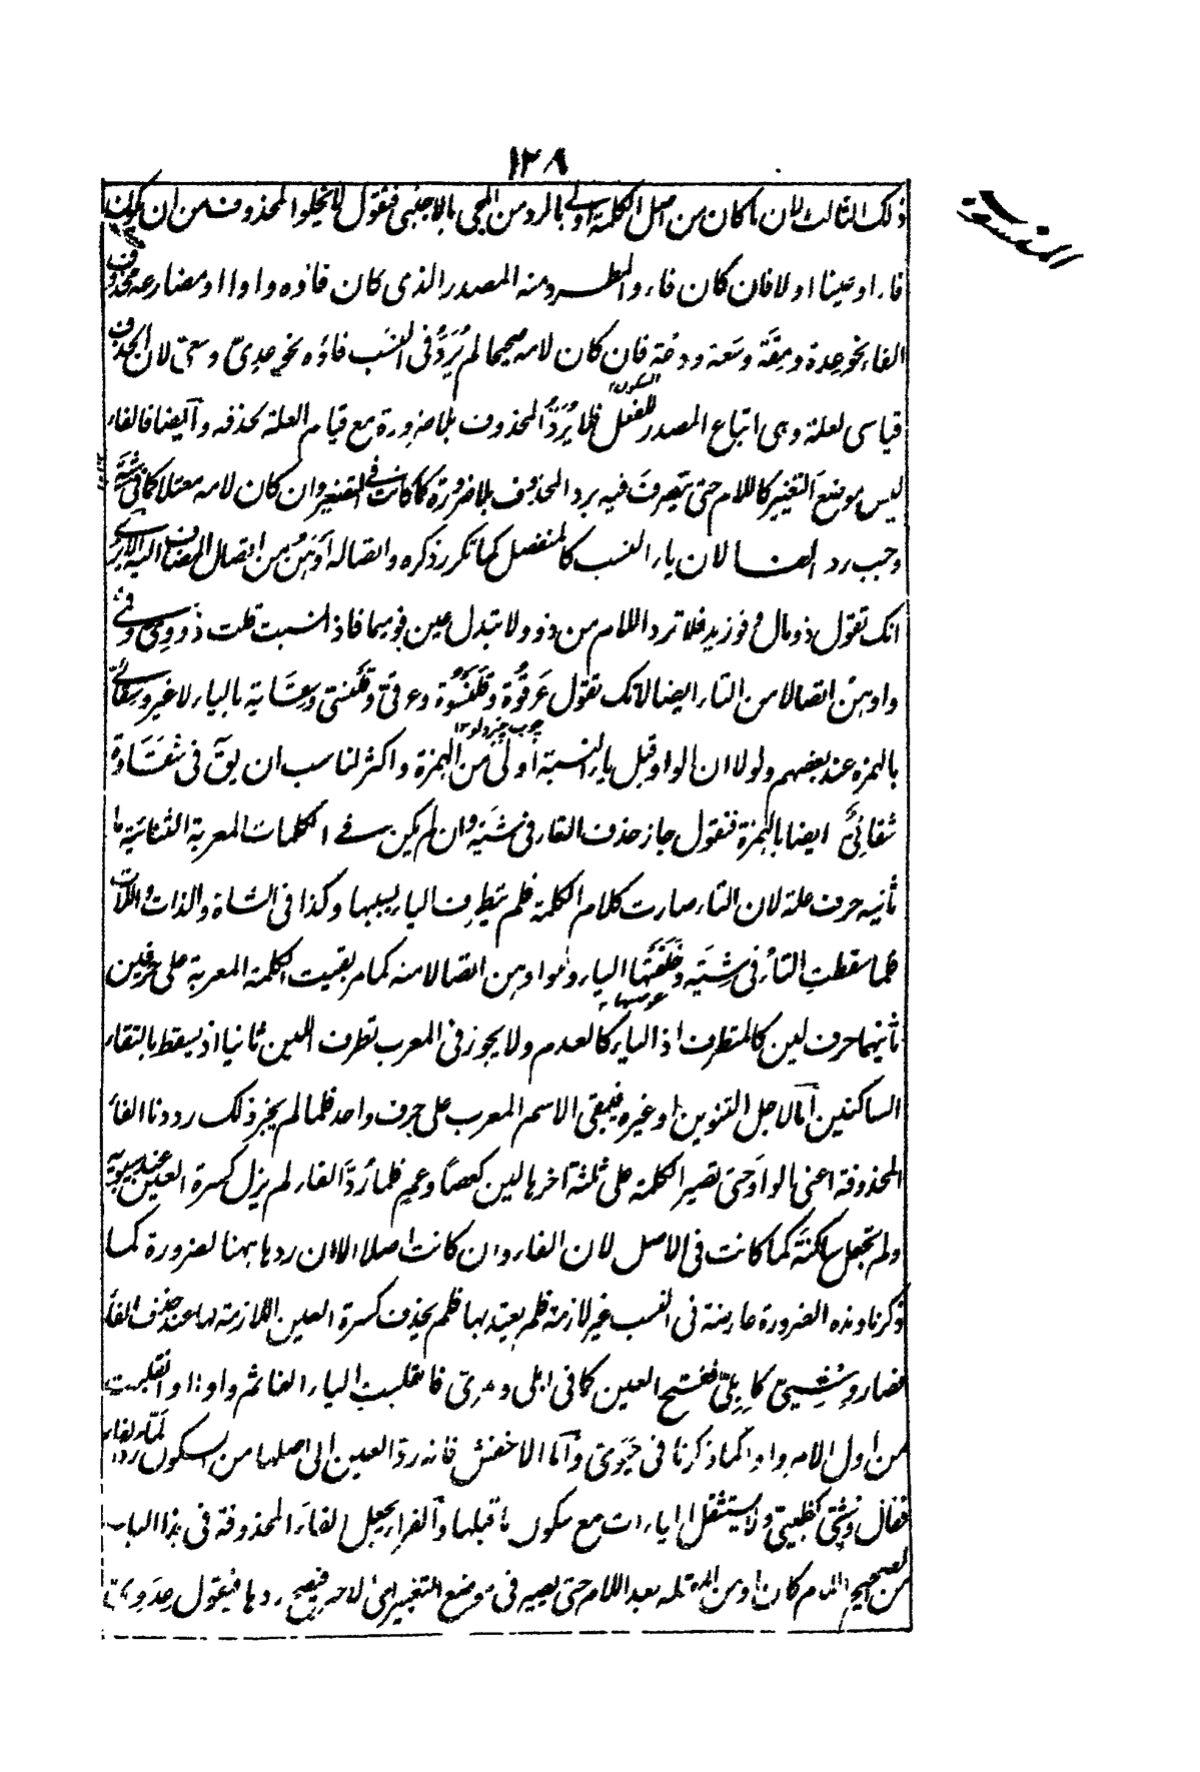 ١٢٨
المنسوب
ذلك الثالث لان ما كان من اصل الكلمة اولى بالرد من المجئ بالاجنبى فنقول لا يخلوا المحذوف من ان يكون
فاء او عينا او لاما فان كان فاء والمطرد منه المصدر الذى كان فاؤه واوا ومضارعه محذوف
الفاء نحو عدة ومقَة وسَعَة ودعَة فان كان لامه صحيحا لم يُرَدَّ فى النسَب فاؤه نحو عِدِىّ وسَعِىّ لان الحذف
قياسى لعلة وهى اتباع المصدر للفعل فلا يُرَدُّ المحذوف بلا ضرورة مع قيام العلة لحذفه وأيضا فالفاء
ليس موضعَ التغير كاللام حتى يتصرفَ فيه برد المحذوف بلا ضرورة كما كانت فى التصغير وان كان لامه معتلا كما فى شية
وجب رد الفاء لان ياء النسب كالمنفصل كما تكرر ذكره واتصاله اوهَنُ من اتصال المضاف اليه الا ترى
انك تقول ذو مال وفو زيد فلا ترد اللام من ذو ولا تبدل عين فو ميما فاذا نسبت قلت ذَوَوِىّ وفمى
واوهن اتصالا من التاء ايضا لانك تقول عَرقُوَة وقَلَنسُوَة وعرقىّ وقلَنسىّ وسِقَاية بالياء لا غير وسقائى
بالهمزه عند بعضهم ولولا ان الواو قبل ياء النسبة اولى من الهمزة واكثر لناسب ان يق فى شَقَاوة
شقائىّ ايضا بالهمزة فنقول جاز حذف الفاء فى شيَة وان لم يكن فى الكلمات المعربة الثنائية ما
ثانيه حرف علة لان التاء صارت كلام الكلمة فلم يتطرف الياء بسببها وكذا فى الشاة والذات واللات
فلما سقطت التاء فى شِيَة وخَلَفَتها الياء وهو اوهن اتصالا منه كما مر بقيت الكلمة المعربة على حرفين
ثانيهما حرف لين كالمتطرف اذ الياء كالعدم ولا يجوز فى المعرب تطرف اللين ثانيا اذ يسقط بالتقاء
الساكنين اما لاجل التنوين او غيره فيبقى الاسم المعرب على حرف واحد فلما لم يجز ذلك رددنا الفاء
المحذوفة اعنى بالواو حتى تصير الكلمة على ثلثة آخرها لين كعصًا وعمٍ فلما رُدّ الفاء لم يزل كسرة العين عند سيبويه
ولم تجعل ساكنة كما كانت فى الاصل لان الفاء وان كانت اصلا الا ان ردها ههنا لضرورة كما
ذكرنا وهذه الضرورة عارضة فى النسب غير لازمة فلم يعتد بها فلم يحذف كسرة العين اللازمة لها عند حذف الفاء
فصار وِشِيِىٌّ كاِبِلِىّ ففتح العين كما فى ابلى ونمرى فانقلبت الياء الفا ثم واوا او انقلبت
من اول الامر واوا كما ذكرنا فى حَيَوِىّ واما الاخفش فانه ردّ العين الى اصلها من السكون لَمّا رد الفاء
فقال وِشيىّ كظبيىّ ولا يستثقل الياءات مع سكون ما قبلها والفراء يجعل الفاء المحذوفة فى هذا الباب
من الصحيح اللام كان او من المعتله بعد اللام حتى يصير فى موضع التغيير اى الآخر فيصح ردها فيقول عِدَوِىّ